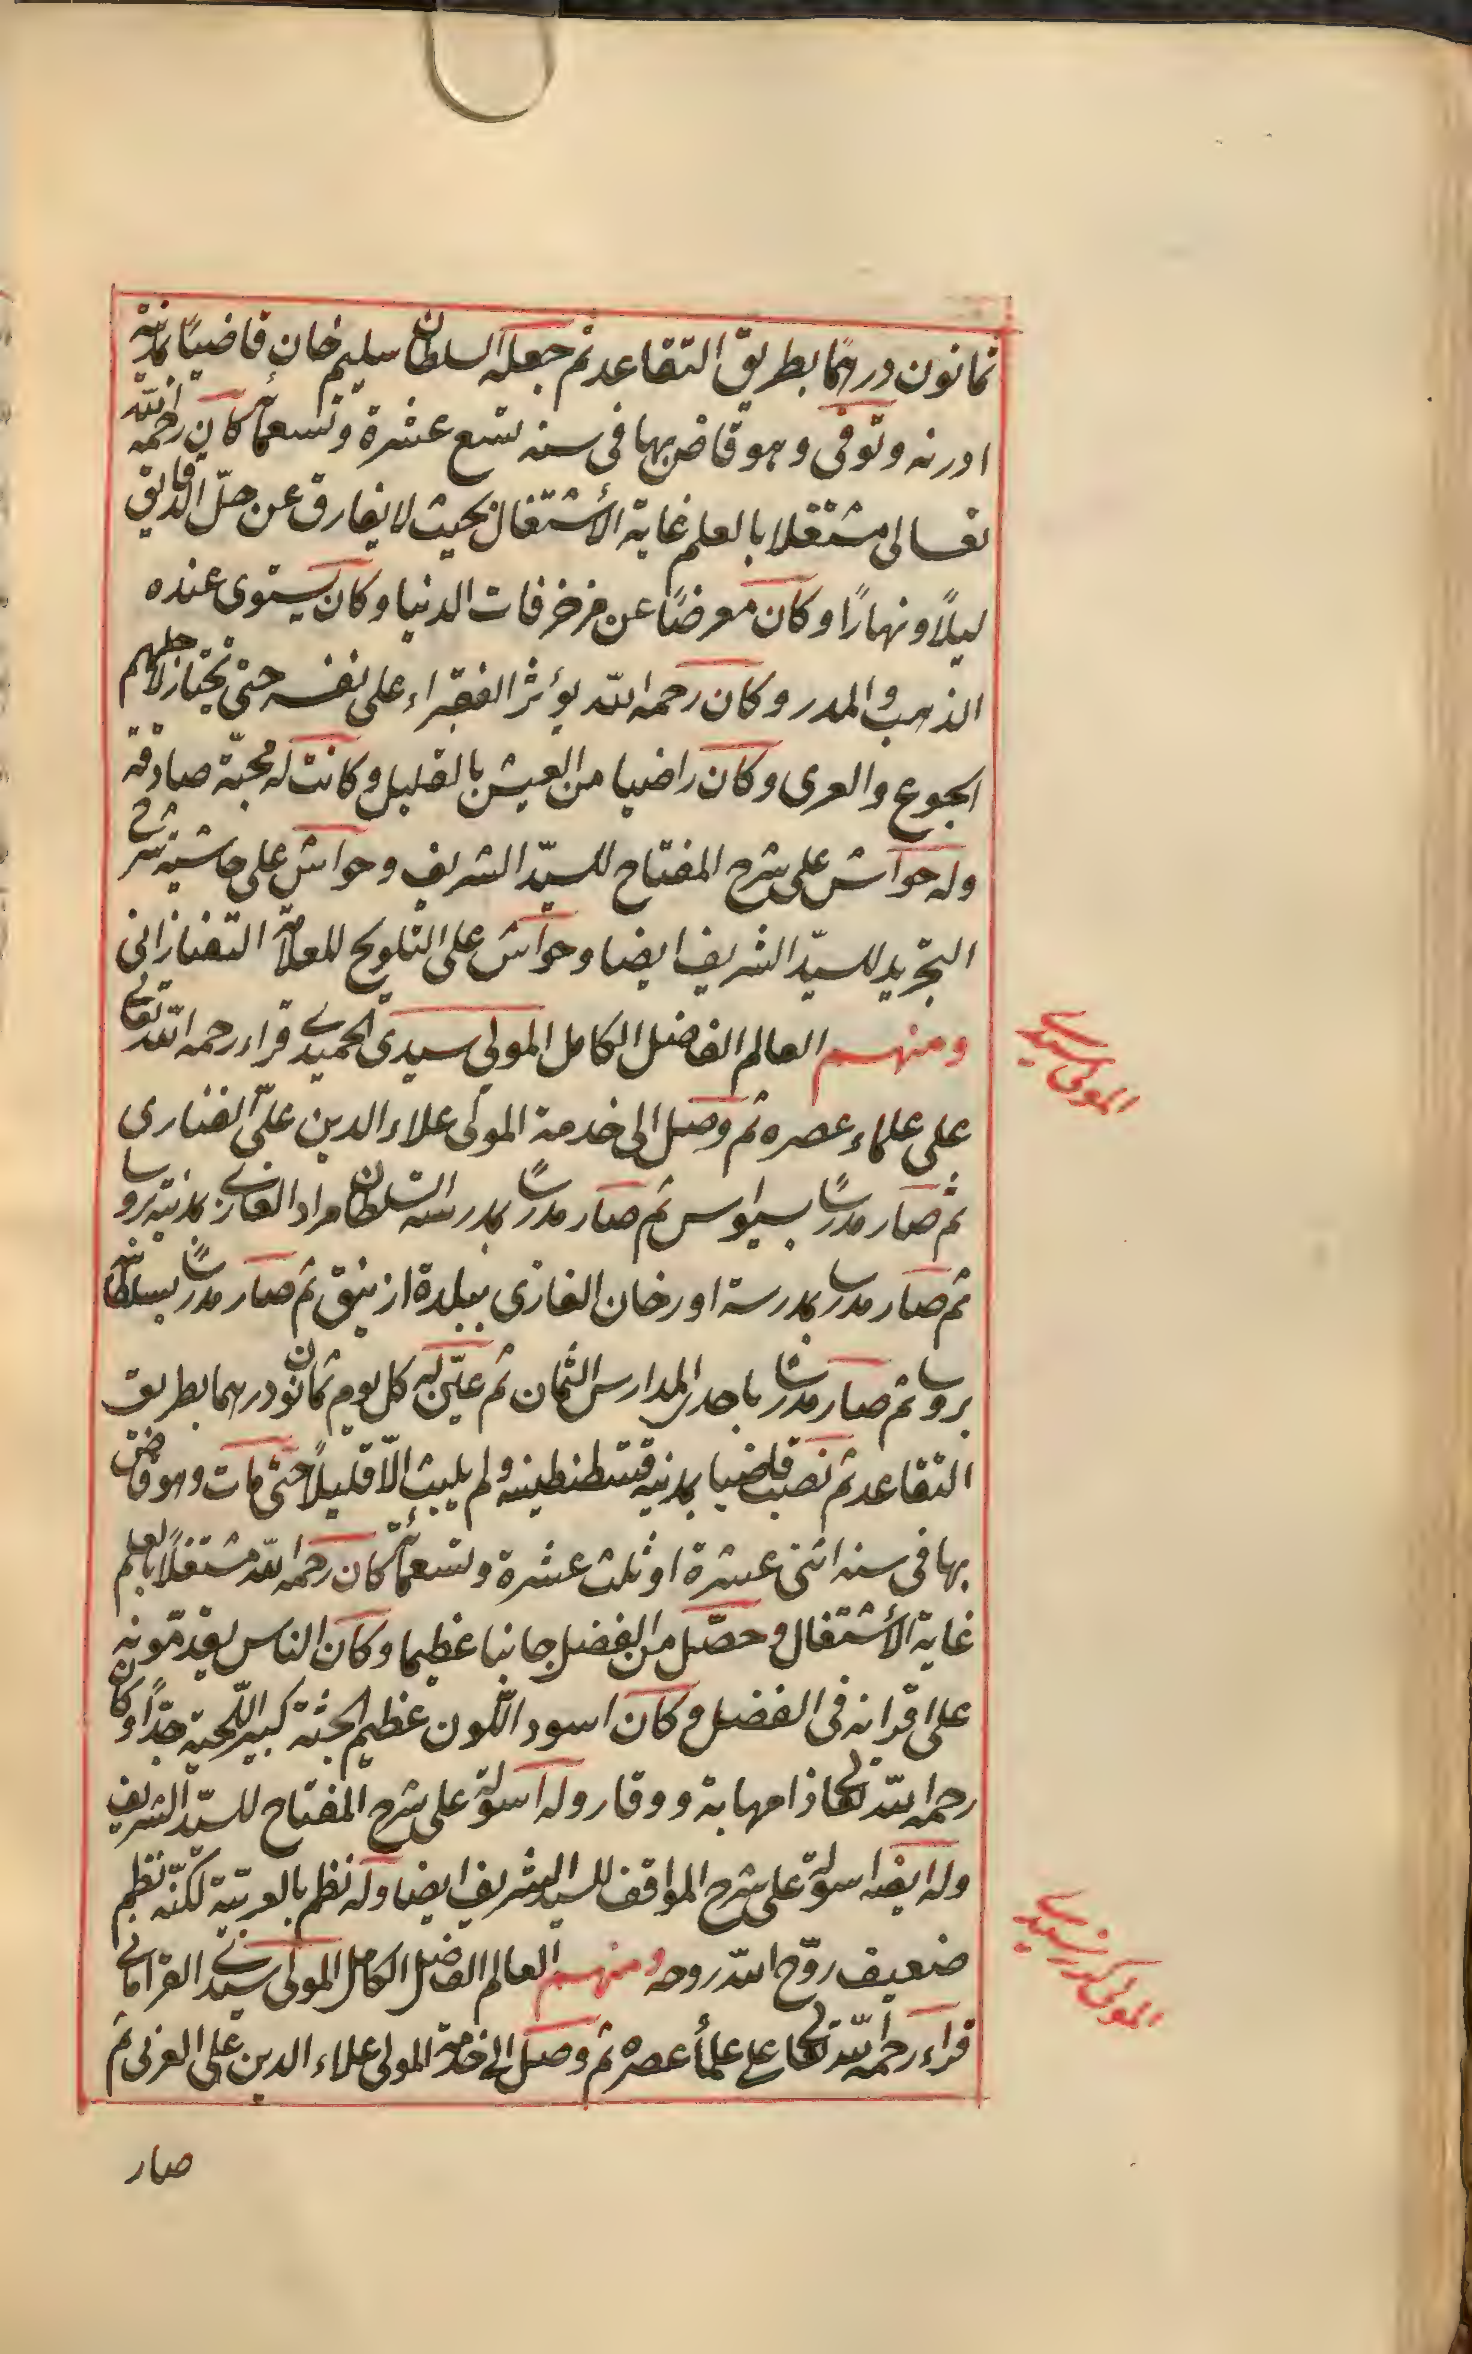 ثمانون درهما بطريق التقاعد ثم جعله السلطان سليم خان قاضيًا بمدينة
ادرنه وتوفى وهو قاض بها فى سنه تسع عشرة وتسعمائة كان رحمه الله
تعالى مشتغلا بالعلم غاية الأشتغال بحيث لا يفارق عن حلّ الدقايق
ليلًا ونهارًا وكان معرضًا عن مزخرفات الدنيا وكان يستوى عنده
الذهب والمدر وكان رحمه الله يؤثر الفقراء على نفسه حتى يختار لاجلهم
الجوع والعرى وكان راضيا من العيش بالقليل وكانت له محبّة صادقة
وله حواش على شرح المفتاح للسيّد الشريف وحواش على حاشية شرح
التجريد للسيّد الشريف ايضا وحواش على التلويح للعلامة التفتازانى
ومنهم العالم الفاضل الكامل المولى سيدى الحميدى قراء رحمه الله تعالى
على علماء عصره ثم وصل الى خدمة المولى علاء الدين علىّ الفنارى
ثم صار مدرسًا بسيواس ثم صار مدرسًا بمدرسة السلطان مراد الغازى بمدينة بروسا
ثم صار مدرسا بمدرسة اورخان الغازى ببلدة ازنيق ثم صار مدرسًا بسلطانية
بروسا ثم صار مدرسًا باحدى المدارس الثمان ثم عيّن له كل يوم ثمانون درهما بطريق
التقاعد ثم نصب قاضيا بمدينة قسطنطينيه ولم يلبث الّا قليلًا حتى مات وهو قاض
بها فى سنه اثنى عشرة او ثلث عشرة وتسعمائة كان رحمه الله مشتغلًا بالعلم
غاية الأشتغال وحصّل من الفضل جانبا عظيما وكان الناس يقدّمونه
على اقرانه فى الفضل وكان اسود اللّون عظيم الجثه كبير اللّحية جدًّا وكان
رحمه الله تعالى ذا مهابة ووقار وله اسولة على شرح المفتاح للسيّد الشريف
وله ايضا اسولة على شرح المواقف للسيد الشريف ايضا وله نظم بالعربيّة لكنّه نظم
ضعيف روّح الله روحه ومنهم العالم الفاضل الكامل المولى سيدى القرامانى
قراء رحمه الله تعالى على علمأ عصره ثم وصل الى خدمة المولى علاء الدين على العربى ثم
صار
المولى سيدى
المولى سيدى